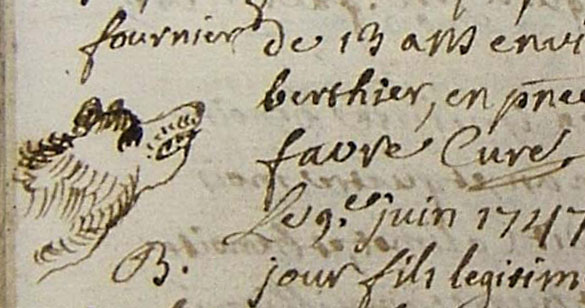 fournier de 13 ans envi
berthier, en pñce
favre Curé
Le 9.e juin 1747
B. jour fils legitim